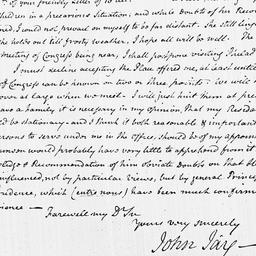 of your friendly letter of
children in a precarious Situation; and while Doubts of her Recov
ed, I could not prevail on myself to be far distant. She still ling
she holds out till frosty weather, I hope all will be well. The
meeting of Congress being near, I shall postpone visiting Philad
I must decline accepting the Place offered me, at least until
of Congress can be known on two or three points — we will
over at large when we meet. I will just hint them at pres
have a family it is necessary in my opinion that my Resid
ld be stationary — and I think it both reasonable & important
ersons to serve under me in the office, should be of my appoin
ommon would probably have very little to apprehend from it
ledge & Recommendation of him obviate Doubts on that H
influenced, not by particular Views, but by general Princi
rudence, which (entre nous) have been much confirm
rience — Farewell my Dr. Sr.
Yours very sincerely
John Jay —